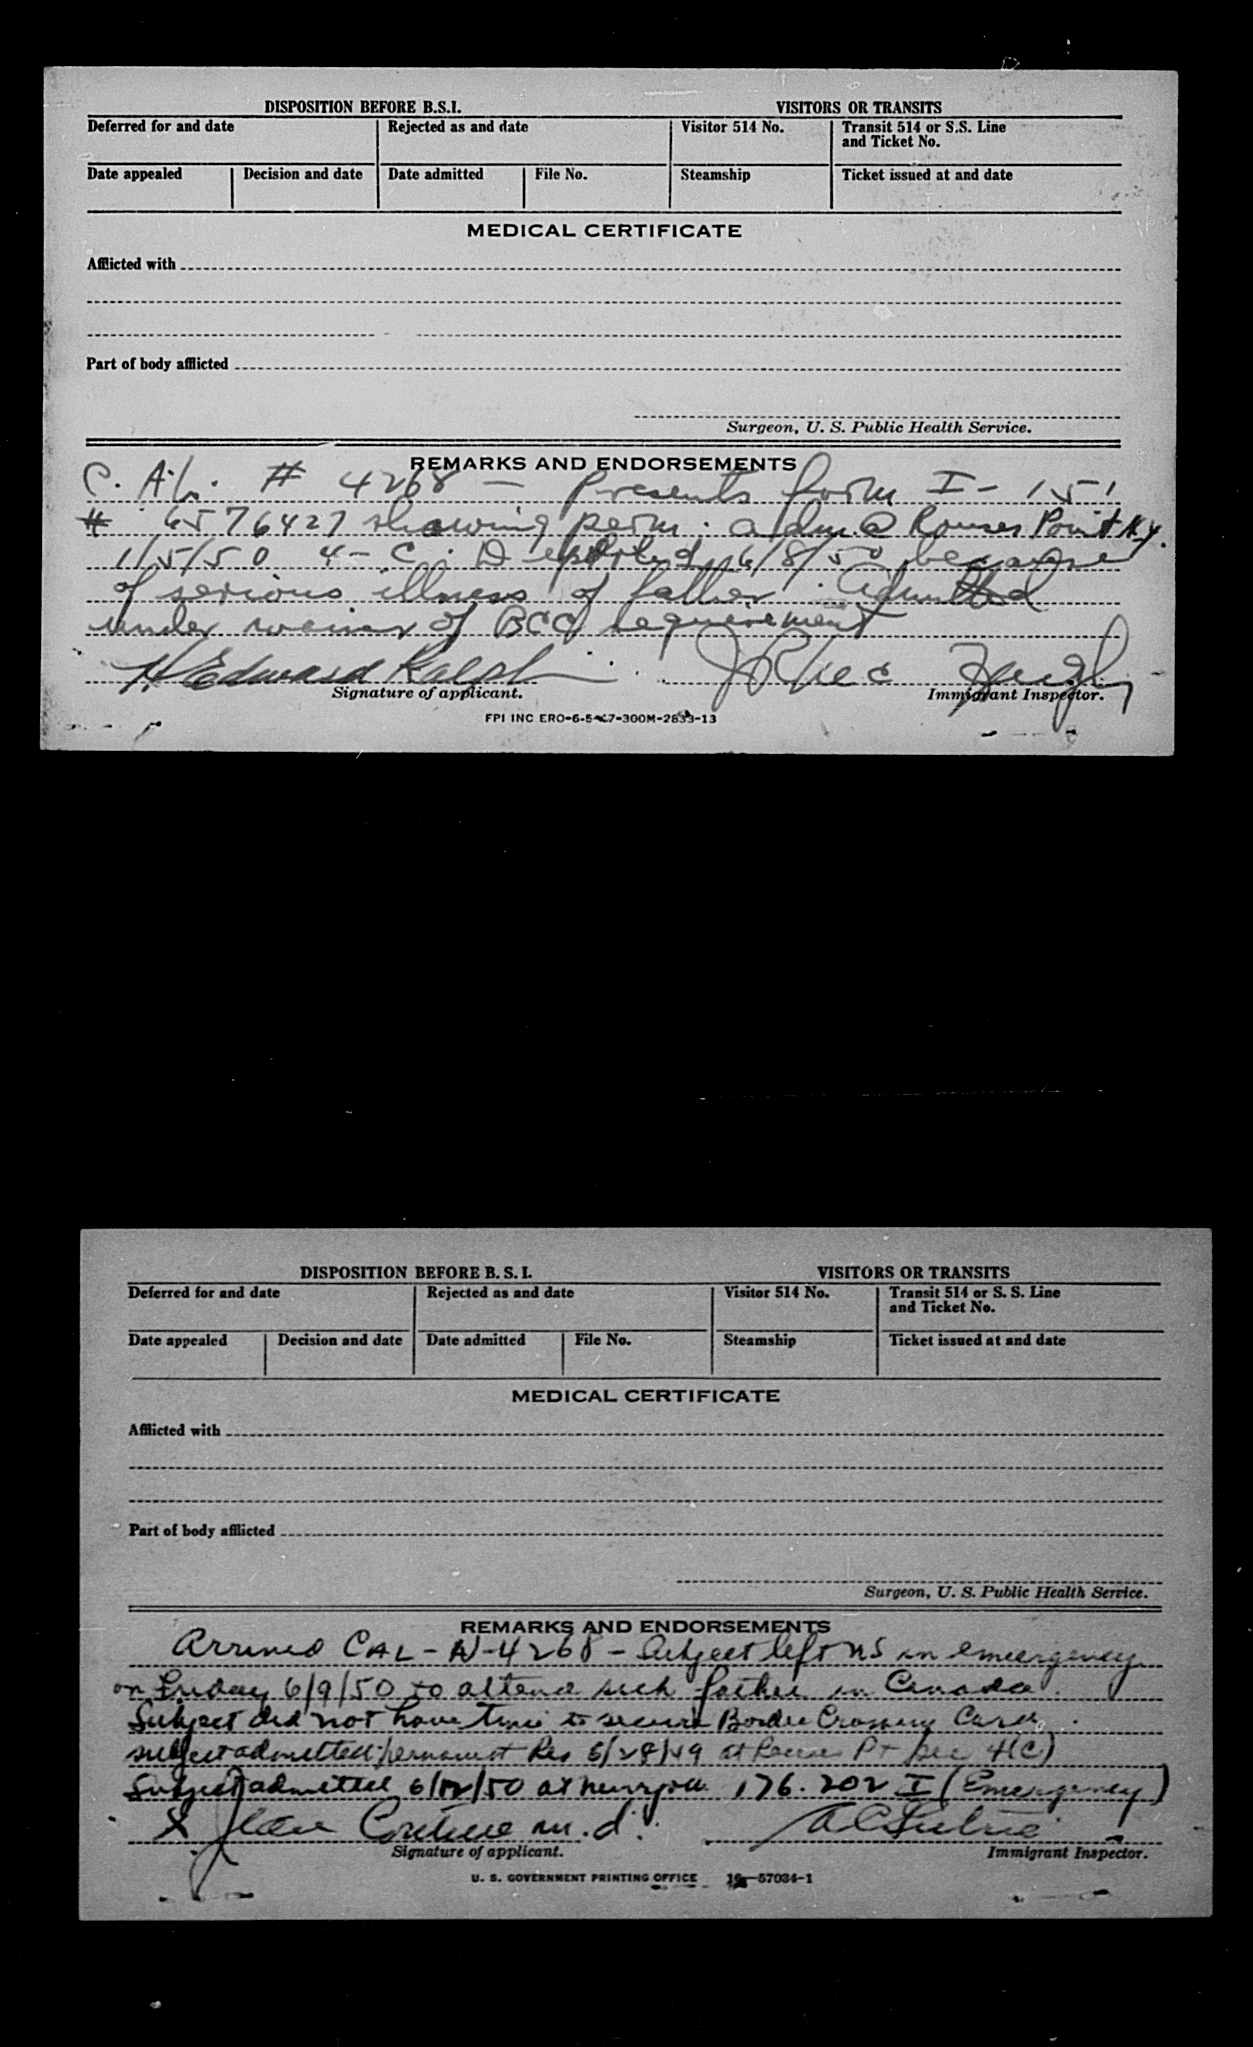 DISPOSITION BEFORE B.S.I. VISITORS OR TRANSITS
Deferred for and date Rejected as and date Visitor 514 No. Transit 514 or S.S. Line
and Ticket No.
Date appealed Decision and date Date admitted File No. Steamship Ticket issued at and date
MEDICAL CERTIFICATE
Afflicted with
Part of body afflicted
Surgeon, U. S. Public Health Service.
REMARKS AND ENDORSEMENTS
C. A. L. # 4268 — presents form I-151
# 6576427 showing perm. adm @ Rouses Point N.Y.
1/5/50 4-C. Departed 6/8/50 because
of serious illness of father. Admitted
under waiver of BCC requirement
H Edward Ralph
Signature of applicant. Immigrant Inspector.
FPI INC ERO-6-5-47-300M-2833-13
DISPOSITION BEFORE B. S. I. VISITORS OR TRANSITS
Deferred for and date Rejected as and date Visitor 514 No. Transit 514 or S. S. Line
and Ticket No.
Date appealed Decision and date Date admitted File No. Steamship Ticket issued at and date
MEDICAL CERTIFICATE
Afflicted with
Part of body afflicted
Surgeon, U. S. Public Health Service.
REMARKS AND ENDORSEMENTS
Arrived CAL-N-4268 - Subject left US in emergency
on Friday 6/9/50 to attend sick father in Canada.
Subject did not have time to secure Border Crossing Card.
subject admitted permanent Res 6/28/49 at Rouses Pt Sec 4(C)
Subject admitted 6/12/50 at 176.202 I (Emergency)
X Jean m.d.
Signature of applicant. Immigrant Inspector.
U. S. GOVERNMENT PRINTING OFFICE 16—57034-1